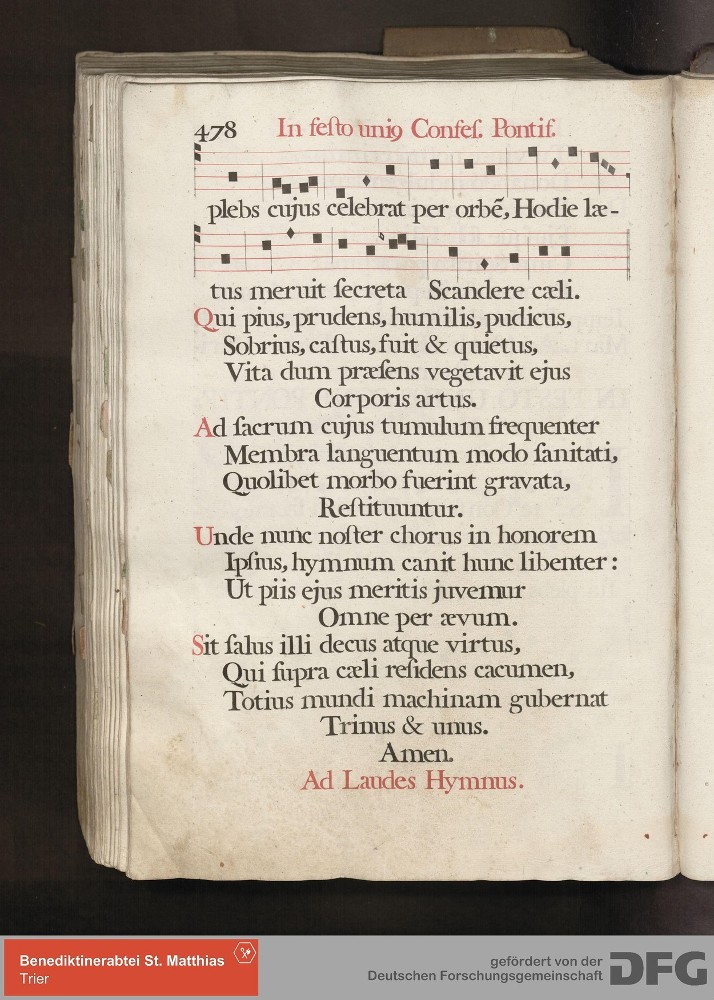 478 In feſto uniꝯ Confeſ. Pontif.
plebs cujus celebrat per orbẽ, Hodie læ-
tus meruit ſecreta Scandere cæli.
Qui pius, prudens, humilis, pudicus,
Sobrius, caſtus, fuit & quietus,
Vita dum præſens vegetavit ejus
Corporis artus.
Ad ſacrum cujus tumulum frequenter
Membra languentum modo ſanitati,
Quolibet morbo fuerint gravata,
Reſtituuntur.
Unde nunc noſter chorus in honorem
Ipſius, hymnum canit hunc libenter:
Ut piis ejus meritis juvemur
Omne per ævum.
Sit ſalus illi decus atque virtus,
Qui ſupra cæli reſidens cacumen,
Totius mundi machinam gubernat
Trinus & unus.
Amen.
Ad Laudes Hymnus.
Benediktinerabtei St. Matthias
Trier
gefördert von der
Deutschen Forschungsgemeinschaft DFG